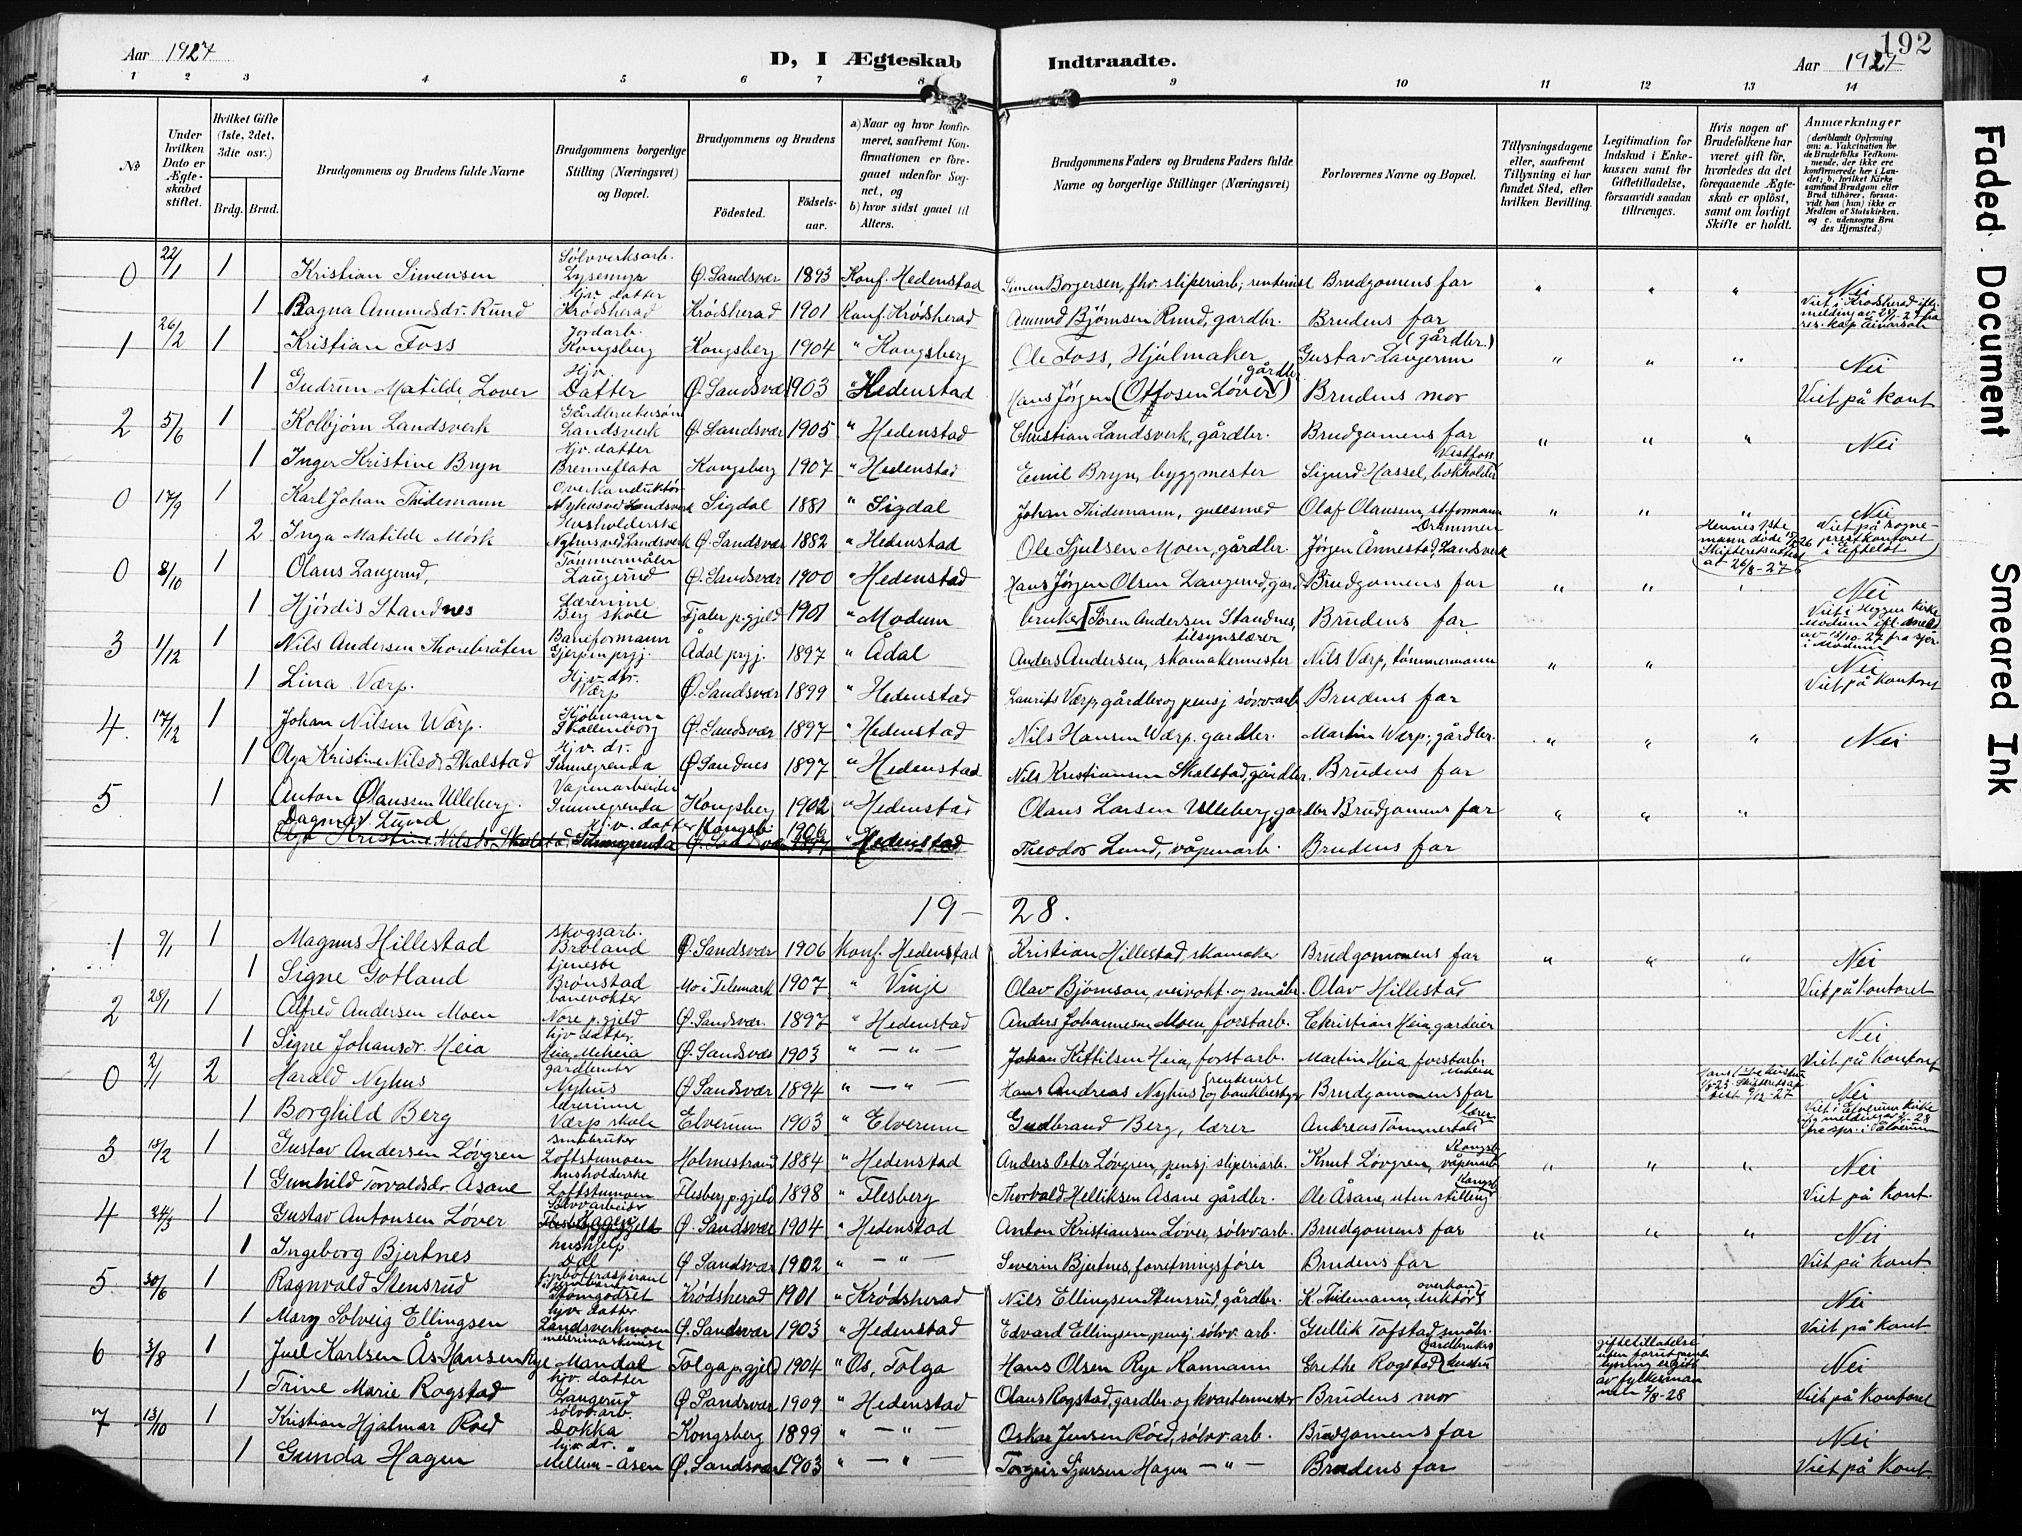 192
Aar 1927 D, I Ægteskab Indtraadte. Aar 1927
1 2 3 4 5 6 7 8 9 10 11 12 13 14
No
Under hvilken Dato er Ægteskabet stiftet.
Hvilket Gifte (1ste, 2det, 3die osv.)
Brdg. Brud.
Brudgommens og Brudens fulde Navne
Brudgommens borgerlige Stilling (Næringsvei) og Bopæl.
Brudgommens og Brudens
Fødested. Fødselsaar.
a) Naar og hvor konfirmeret, saafremt Konfirmationen er foregaaet udenfor Sognet, og
b) hvor sidst gaaet til Alters.
Brudgommens Faders og Brudens Faders fulde Navne og borgerlige Stillinger (Næringsvei)
Forlovernes Navne og Bopæl.
Tillysningsdagene eller, saafremt Tillysning ei har fundet Sted, efter hvilken Bevilling.
Legitimation for Indskud i Enkekassen samt for Giftetilladelse, forsaavidt saadan tiltrænges.
Hvis nogen af Brudefolkene har været gift før, hvorledes da det foregaaende Ægteskab er opløst, samt om lovligt Skifte er holdt.
Anmærkninger (deriblandt Oplysning om: a. Vakcination for de Brudefolks Vedkommende, der ikke ere konfirmerede her i Landet; b. hvilket Kirkesamfund Brudgom eller Brud tilhører, forsaavidt han (hun) ikke er Medlem af Statskirken, og c. udensogns Brudes Hjemsted.)
0 22/1 1 Kristian Simensen Sølvverksarb. Lysemyr Ø. Sandsvær 1893 Konf. Hedenstad Simen Borgersen, fhv. sliperiarb; rentenist Brudgomens far " " " Nei
1 Ragna Amundsdr. Rund Hjv. datter Krødsherad Krødsherad 1901 Konf. Krødsherad Amund Bjørnsen Rund, gardbr. Brudens far Viet i Krødsherad
1 26/2 1 Kristian Foss Jordarb. Kongsberg Kongsberg 1904 " Kongsberg Ole Foss, Hjulmaker Gustav Laugerud (gårdbr.) " " " Nei
1 Gudrun Matilde Løver Hjv. Datter Ø. Sandsvær 1903 " Hedenstad Hans Jørgen (Ottosen Løver) gårdbr. Brudens mor Viet på kont
2 5/6 1 Kolbjørn Landsverk Gårdbrukersøn Landsverk Ø. Sandsvær 1905 " Hedenstad Christian Landsverk, gårdbr. Brudgomens far " " " Nei
1 Inger Kristine Bryn Hjv. datter Brenneflata Kongsberg 1907 " Hedenstad Emil Bryn, byggmester Sigurd Hassel, bokholder Vestfoss
0 17/9 1 Karl Johan Thidemann Overkonduktør Nyhus ved Landsverk Sigdal 1881 " Sigdal Johan Thidemann, gullsmed Olaf Olaussen, stiformann Drammen " " " Nei
2 Inga Matilde Mørk Husholderske Nyhus ved Landsverk Ø. Sandsvær 1882 " Hedenstad Ole Sjulsen Moen, gårdbr Jørgen Ånnestad, Landsverk Hennes 1ste mann døde Skifteretsattest av 26/8-27 Viet på sogneprestkontoret i Efteløt
0 8/10 1 Olaus Laugerud, Tømmermåler Laugerud Ø. Sandsvær 1900 " Hedenstad Hans Jørgen Olsen Laugerud, gard- Brudgomens far " " " Nei
1 Hjørdis Standnes Lærerinne Berg skole Fjaler p.gjeld 1901 " Modum bruker Søren Andersen Standnes, tilsynslærer Brudens far Viet i Heggen kirke Modum
3 1/12 1 Nils Andersen Thorebråten Baneformann Gjerpen prgj. Ådal prgj. 1897 " Ådal Anders Andersen, skomakermester Nils Værp, tømmermann " " Nei
1 Lina Værp. Hjv. dtr. Værp Ø. Sandsvær 1899 " Hedenstad Laurits Værp gårdbr og pensj sølvv.arb Brudens far Viet på kontoret
4 17/12 1 Johan Nilsen Værp. Kjøbmann Skollenborg Ø. Sandsvær 1897 " Hedenstad Nils Hansen Værp. gardbr. Martin Værp, gårdbr. " " " Nei
1 Olga Kristine Nilsdr Skalstad Hjv. dr. Simmegrenda Ø Sandnes 1897 " Hedenstad Nils Kristiansen Skalstad, gårdbr. Brudens far
5 1 Anton Olaussen Ulleberg. Vapenarbeider Simmegrenda Kongsberg 1902 " Hedenstad Olaus Larsen Ulleberg, gardbr Brudgomens far " " "
Dagmar Lund Hjv. datter Kongsb. 1906
Olga Kristine Nilsdr Skalstad Simmegrenda Ø. Sandsvær 1897 " Hedenstad Theodor Lund, våpenarb. Brudens far
19 - 28.
1 9/1 1 Magnus Hillestad skogsarb. Broland Ø. Sandsvær 1906 Konf. Hedenstad Kristian Hillestad skomaker Brudgommens far " " " Nei
1 Signe Gotland tjeneste Brønstad Mo i Telemark 1907 " Vinje Olav Bjørnson, veivokt. og småbr. Olav Hillestad Viet på kontoret
2 28/1 1 Alfred Andersen Moen banevokter Nore p.gjeld Ø. Sandsvær. 1897 " Hedenstad Anders Johannesen Moen, forstarb. Christian Heia gardeier Nei
1 Signe Johansdr. Heia hjv datter. Heia, Meheia Ø. Sandsvær 1903 " — " — Johan Kittilsen Heia, forstarb. Martin Heia forstarb. Viet på kontoret
0 2/1 2 Harald Nyhus gardbruker Nyhus Ø Sandsvær 1894 " — " — Hans Andreas Nyhus (rentenist og bankbestyr Brudgommens far Nei
1 Borghild Berg lærerinne Værp skole Elverum 1903 " Elverum Gudbrand Berg, lærer Andreas Tømmerdal lærer Viet i Elverum kirke
3 18/2 1 Gustav Andersen Løvgren småbruker Loftstumoen Holmestrand 1884 " Hedenstad Anders Peter Løvgren, pensj sliperiarb. Knut Løvgren, våpenarb Kongsb. " " " Nei
1 Gunhild Torvaldsdr. Åsane husholderske Loftstumoen Flesberg p.gjeld 1898 " Flesberg Thorvald Helliksen Åsane gårdbr. Ole Åsane, uten stilling Kongsb. Viet på kont.
4 24/3 1 Gustav Antonsen Løver Sølvv arbeider Ø. Sandsvær 1904 " Hedenstad Anton Kristiansen Løver, sølvv.arb. Brudgomens far " " " Nei
1 Ingeborg Bjertnes hushjelp Dal Ø Sandsvær 1902 " — " — Severin Bjertnes, forretningsfører Brudens far Viet på kont.
5 30/6 1 Ragnvald Stensrud Strømgodset Krødsherad 1901 " Krødsherad Nils Ellingsen Stensrud, gårdbr. K. Thidemann, overkonduktør Nei
1 Mary Solveig Ellingsen hjv. datter Landsverkmoen Ø. Sandsvær 1903 " Hedenstad Edvard Ellingsen pensj. sølvv. arb. Gullik Tofstad småbr. Viet på kont
6 3/8 1 Juel Karlsen Ås Hansen Rye Mandal Tolga p.gjeld 1904 " Os, Tolga Hans Olsen Rye Kamann Grethe Rogstad gårdbruker giftetillatelse uten forutgående lysning er gitt av fylkesmannen 2/8-28 Nei
1 Trine Marie Rogstad hjv. datter Laugerud Ø. Sandsvær 1909 " Hedenstad Olaus Rogstad, gardbr. og kvartermester Brudens mor Viet på kontoret
7 13/10 1 Kristian Hjalmar Roed sølvv. arb. Dokka Kongsberg 1899 " — " — Oskar Jensen Röed, sølvv. arb. Brudgomens far Nei
1 Gunda Hagen hjv. dr. Mellum-Åsen Ø. Sandsvær 1903 " — " — Torgeir Sjursen Hagen — " — Brudens far Viet på kont
Faded Document Smeared Ink